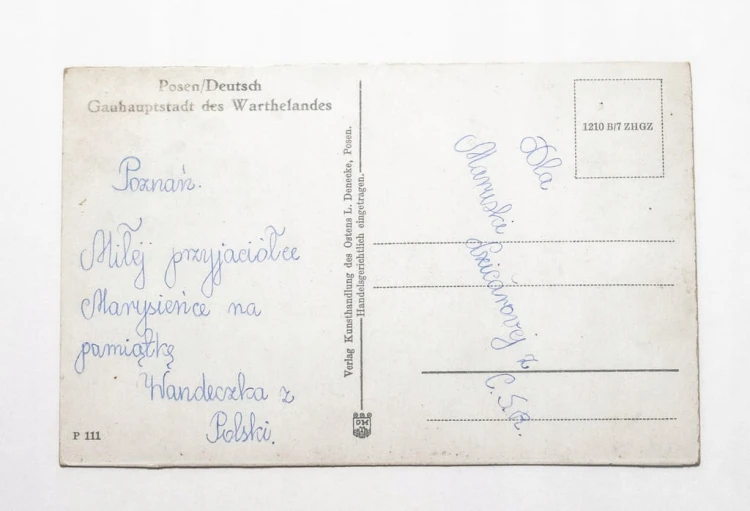 Posen/Deutsch
Gauhauptstadt des Warthelandes
Poznań.
Miłej przyjaciółce
Marysieńce na
pamiątkę
Wandeczka z
Polski.
P 111
Verlag Kunsthandlung des Ostens L. Denecke, Posen.
Handelsgerichtlich eingetragen.
1210 B/7 ZHGZ
Dla
Maruski
z
Č.S.R.